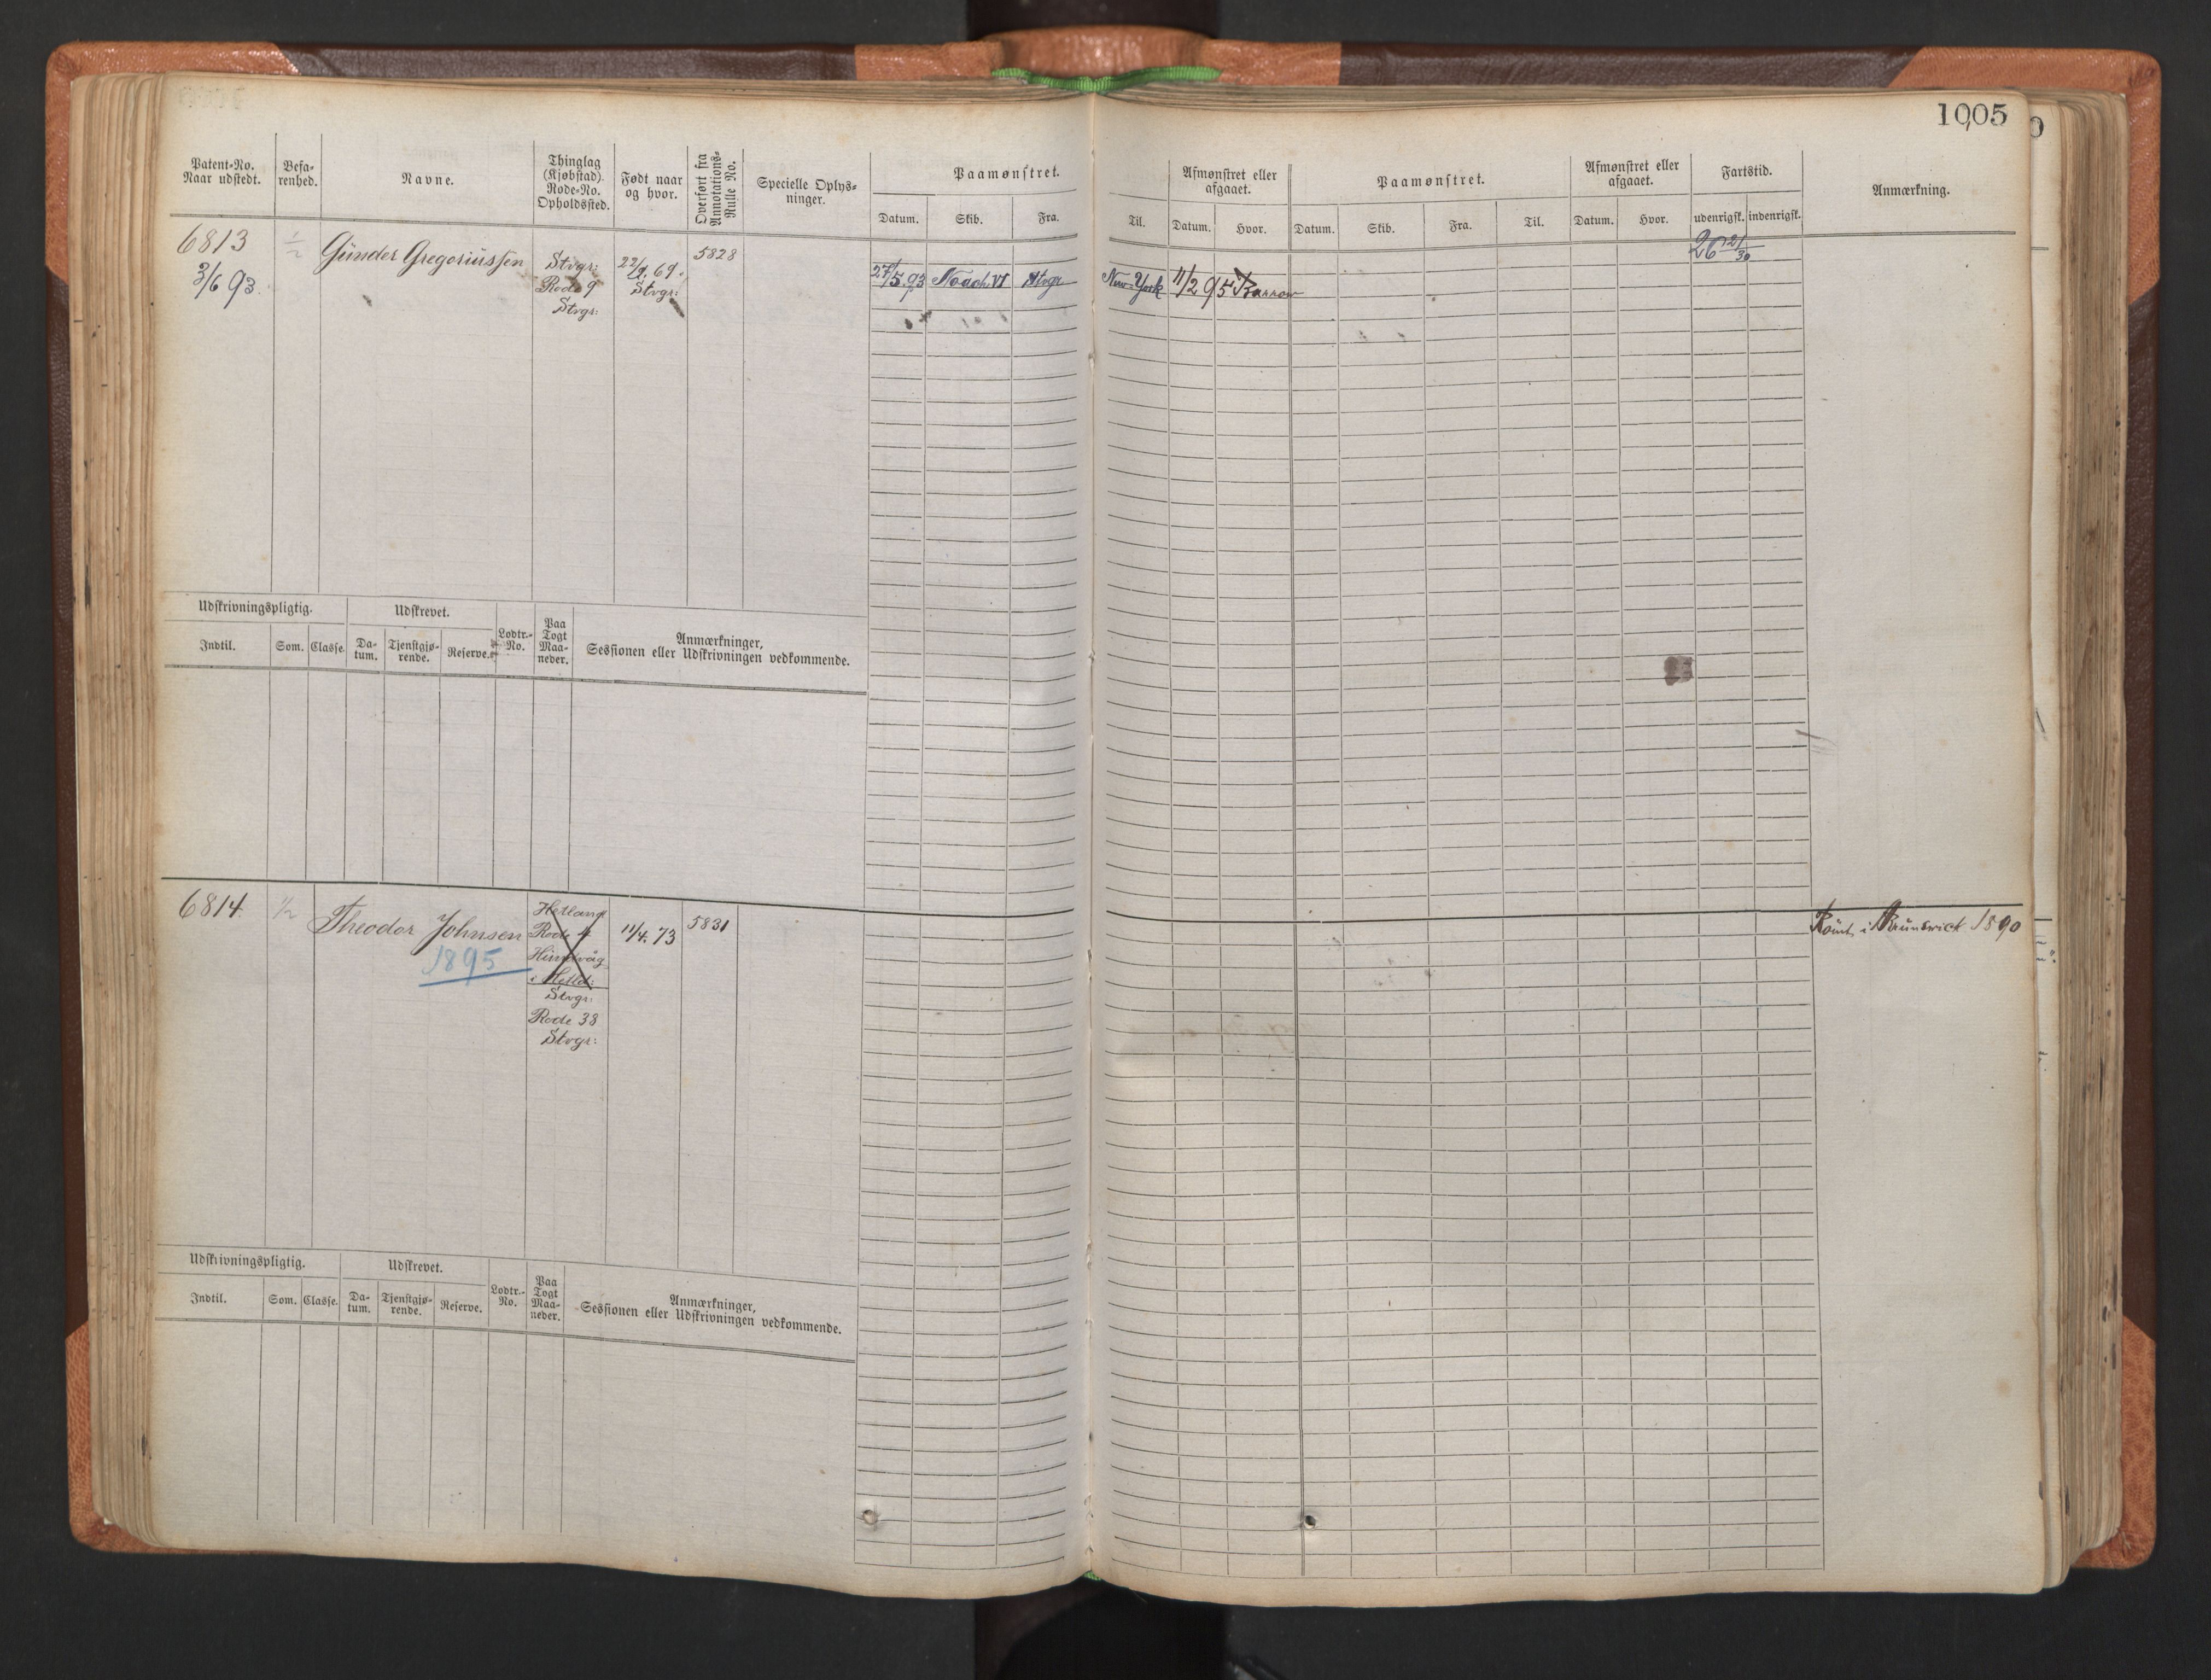 1005
Patent-No.
Naar udstedt.
Befa-
renhed.
Navne.
Thinglag
(Kjøbstad).
Rode-No.
Opholdssted.
Født naar
og hvor.
Overført fra
Annotations-
Rulle No.
Specielle Oplys-
ninger.
Paamønstret.
Datum.
Skib.
Fra.
Til.
Afmønstret eller
afgaaet.
Datum.
Hvor.
Paamønstret.
Datum.
Skib.
Fra.
Til.
Afmønstret eller
afgaaet.
Datum.
Hvor.
Fartstid.
udenrigsk.
indenrigsk.
Anmærkning.
6813
3/6 93.
1/2
Gunder Gregoriussen
Stvgr:
Rode 9
Stvgr:
22/9. 69.
Stvgr:
5828
27/5.93 Noach VI Stvgr New-York 11/2 95 Barrow
26 21/30
Udskrivningspligtig.
Indtil.
Som.
Classe.
Udskrevet.
Da-
tum.
Tjenstgjø-
rende.
Reserve.
Lodtr.-
No.
Paa
Togt
Maa-
neder.
Anmærkninger,
Sessionen eller Udskrivningen vedkommende.
6814.
1/2
Theodor Johnsen
1895
Hetland
Rode 4
Hundvåg
i Hetld:
Stvgr:
Rode 38
Stvgr:
11/4. 73
5831
Römt i Brunswick 1890
Udskrivningspligtig.
Indtil.
Som.
Classe.
Udskrevet.
Da-
tum.
Tjenstgjø-
rende.
Reserve.
Lodtr.-
No.
Paa
Togt
Maa-
neder.
Anmærkninger,
Sessionen eller Udskrivningen vedkommende.